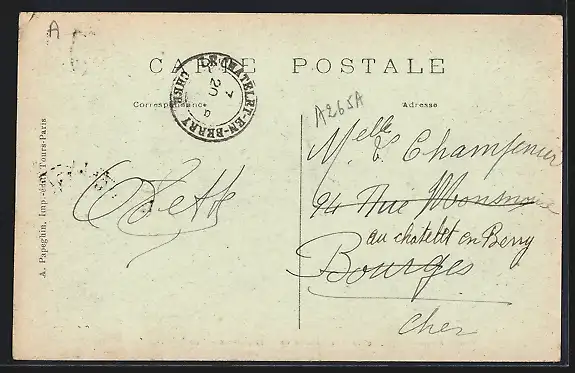 A
CARTE POSTALE
LE CHATELET-EN-BERRY
CHER
7
20
Correspondance
Adresse
A265A
Melle E Champenier
94 Rue
au chatelet en Berry
Bourges
Cher
Odette
A. Papeghin, Imp.-édit. Tours-Paris